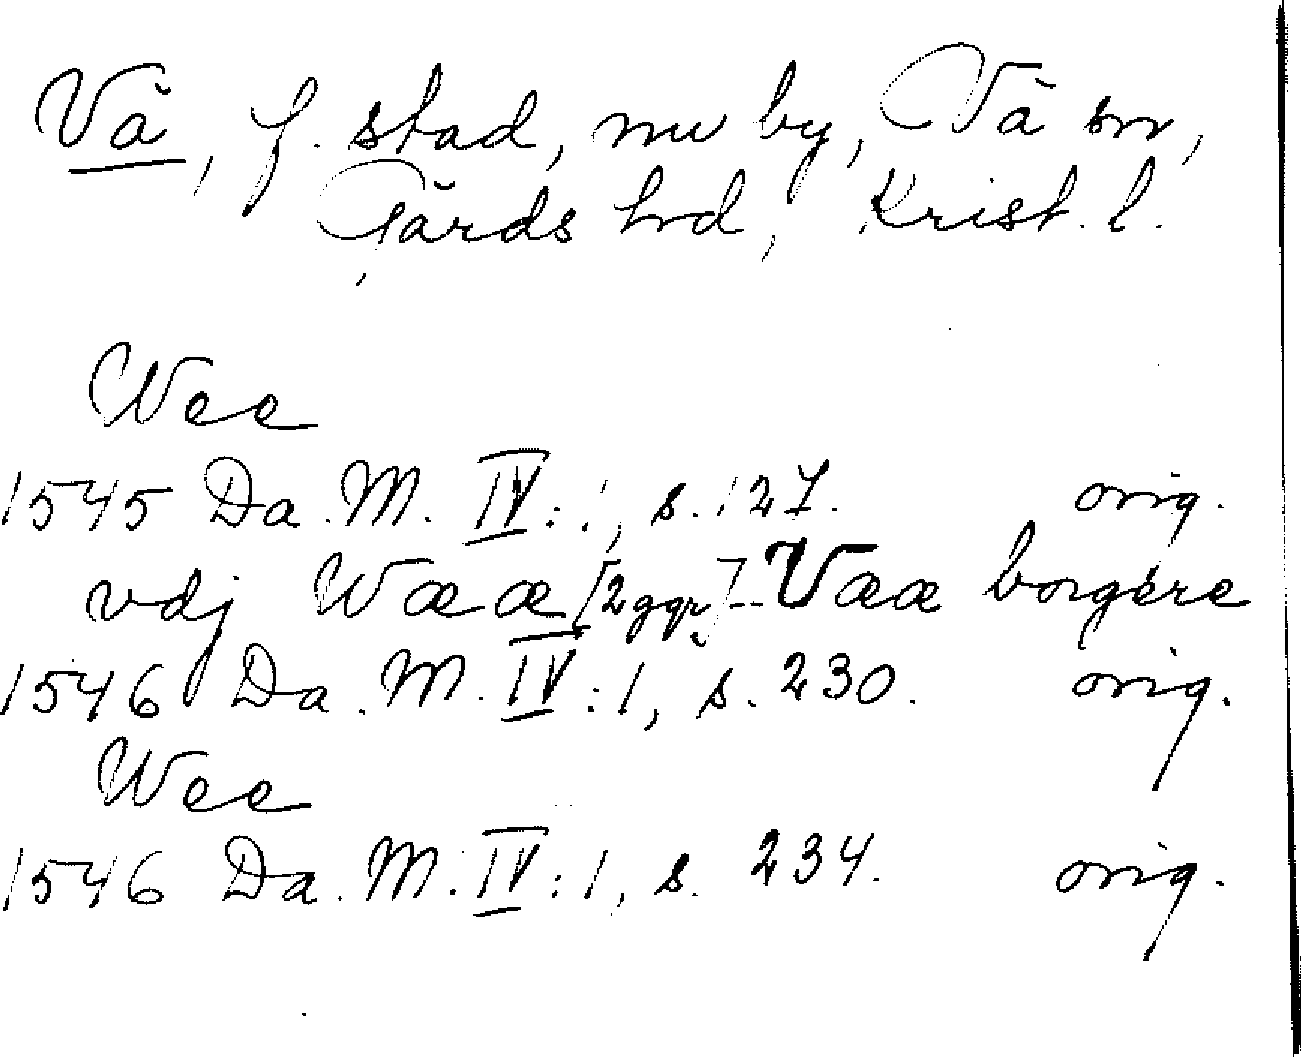 Vä, f. stad, nu by, Vä sn,
Gärds hd, Krist. l.
Wee
1545 Da. M. IV: 1, s. 127. orig.
vdj Wææ [2 ggr] -- Vææ borgere
1546 Da. M. IV: 1, s. 230. orig.
Wee
1546 Da. M. IV: 1, s. 234. orig.